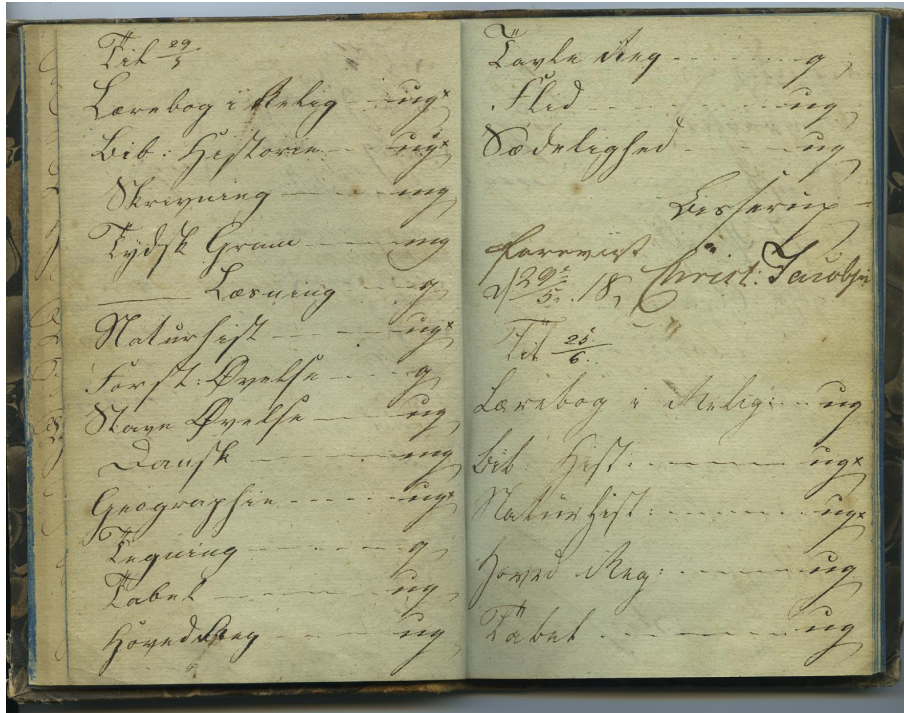 Til 29/5
Lærebog i Relig — ug×
Bib: Historie — ug×
Skrivning — mg
Tydsk Gram — mg
— Læsning — g
Naturhist — ug×
Forst: Øvelse — g
Stave Øvelse — ug
Dansk — mg
Geographie - - - - ug×
Tegning - - - - g
Tabel — ug
Hoved Reg — ug
Tavle Reg - - - - - - g
Flid - - - - - - ug
Sædelighed - - ug
Bisserup
Forevist
d 29/5 18 Christ: Jacobsen
Til 25/6
Lærebog i Relig: - - ug
Bib: Hist: - - - - - ug×
Naturhist: - - - - - ug×
Hoved Reg: - - - - - ug
Tabel - - - - - - ug